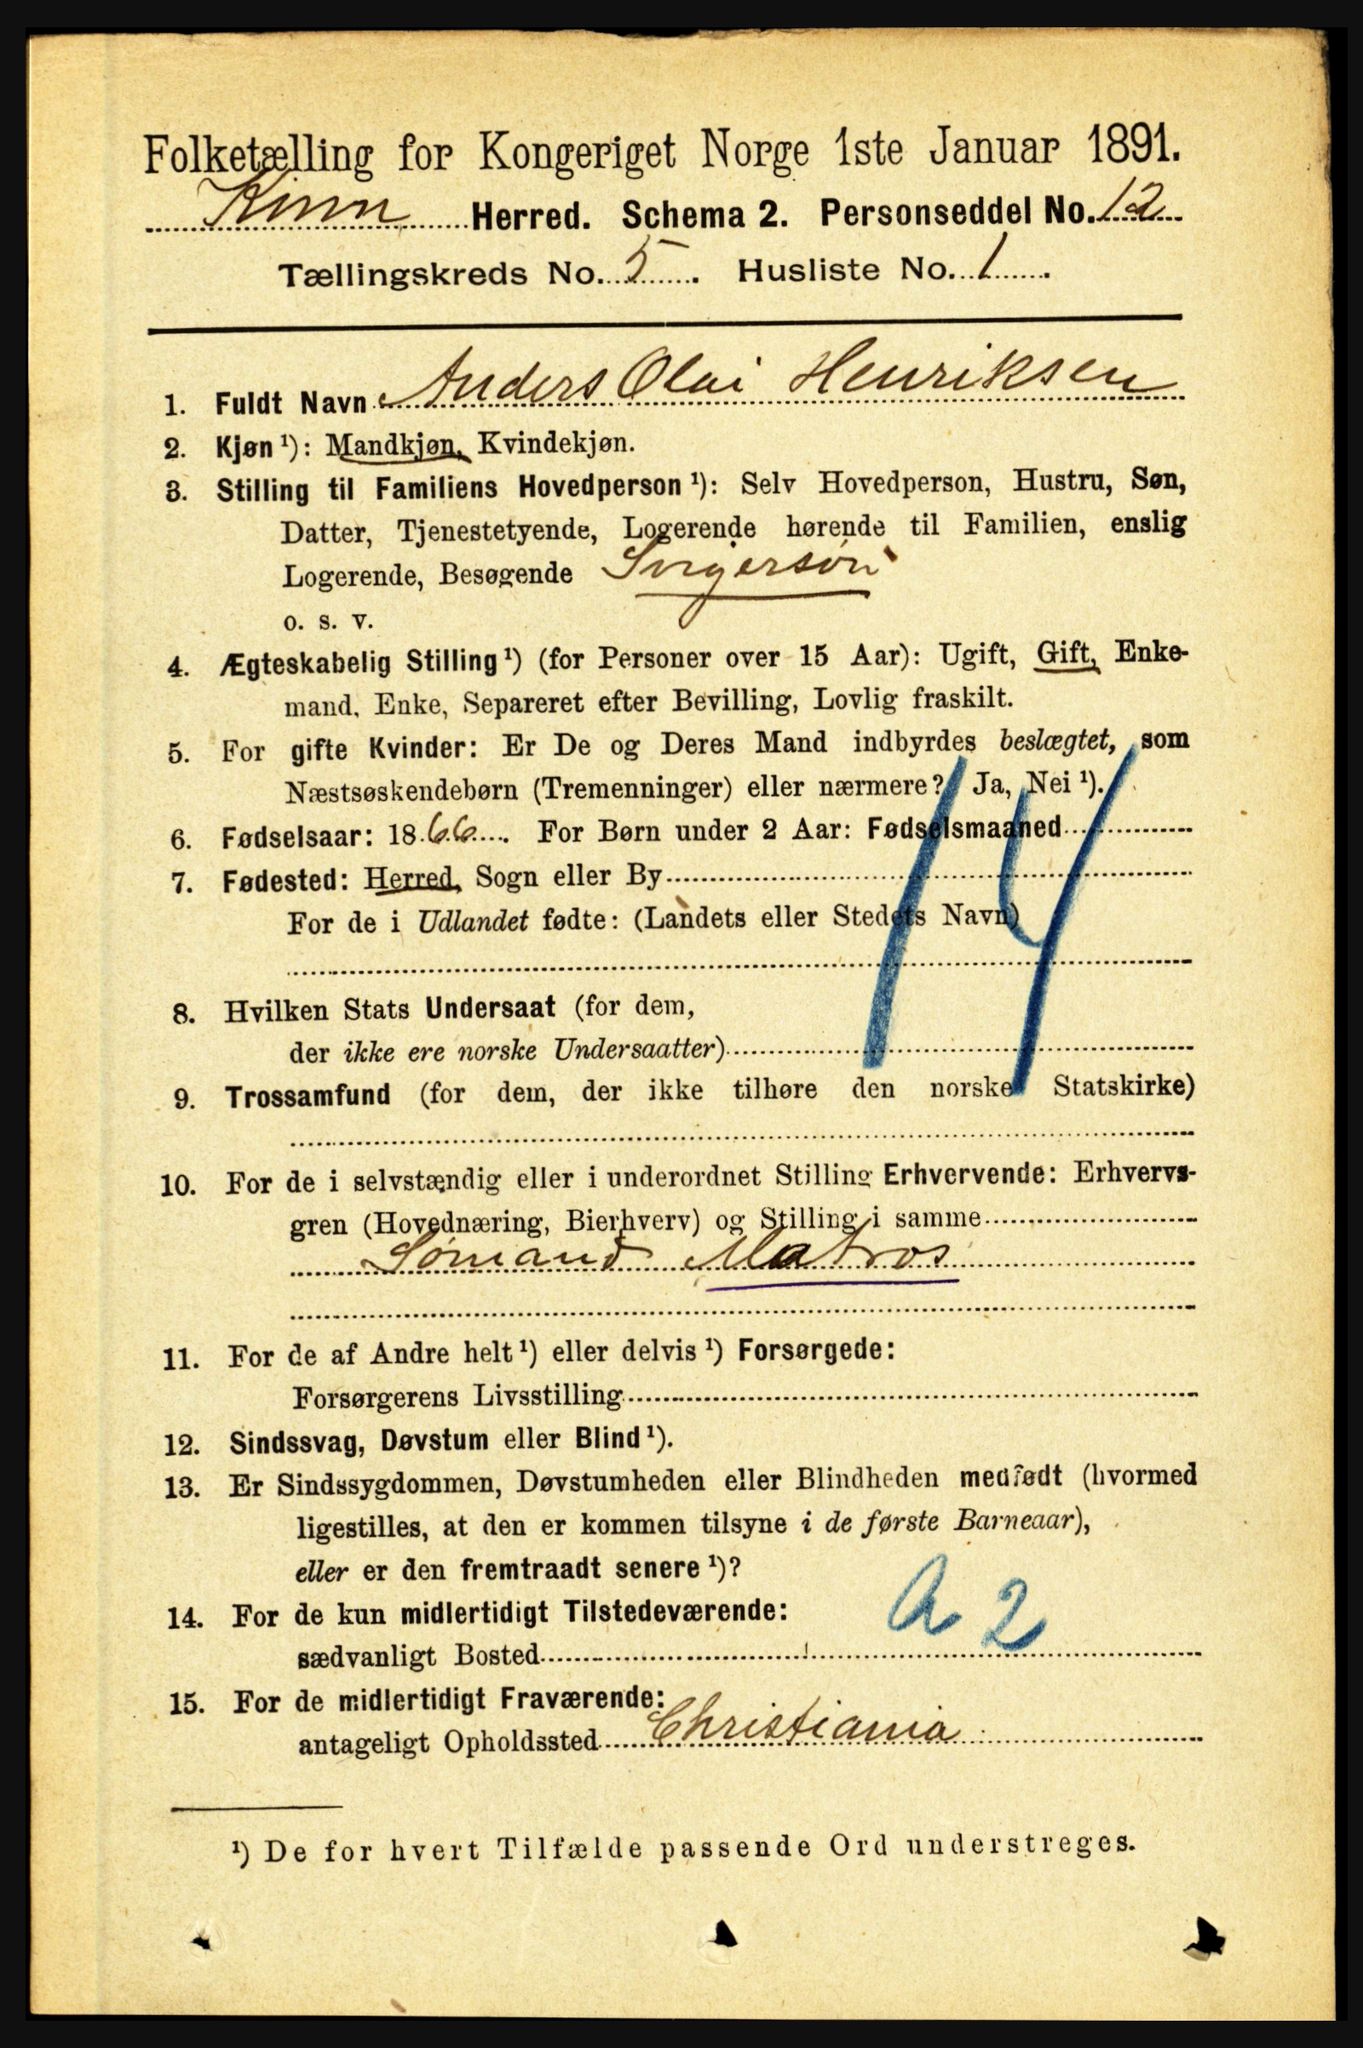 Folketælling for Kongeriget Norge 1ste Januar 1891.
Kinn Herred. Schema 2. Personseddel No. 12
Tællingskreds No. 5. Husliste No. 1.
1. Fuldt Navn Anders Olai Henriksen
2. Kjøn ¹): Mandkjøn, Kvindekjøn.
3. Stilling til Familiens Hovedperson ¹): Selv Hovedperson, Hustru, Søn,
Datter, Tjenestetyende, Logerende hørende til Familien, enslig
Logerende, Besøgende Svigersøn
o. s. v.
4. Ægteskabelig Stilling ¹) (for Personer over 15 Aar): Ugift, Gift, Enke-
mand, Enke, Separeret efter Bevilling, Lovlig fraskilt.
5. For gifte Kvinder: Er De og Deres Mand indbyrdes beslægtet, som
Næstsøskendebørn (Tremenninger) eller nærmere? Ja, Nei ¹).
6. Fødselsaar: 1866. For Børn under 2 Aar: Fødselsmaaned
7. Fødested: Herred, Sogn eller By
For de i Udlandet fødte: (Landets eller Stedets Navn)
14
8. Hvilken Stats Undersaat (for dem,
der ikke ere norske Undersaatter)
9. Trossamfund (for dem, der ikke tilhøre den norske Statskirke)
10. For de i selvstændig eller i underordnet Stilling Erhvervende: Erhvervs-
gren (Hovednæring, Bierhverv) og Stilling i samme
Sømand Matros
11. For de af Andre helt ¹) eller delvis ¹) Forsørgede:
Forsørgerens Livsstilling
12. Sindssvag, Døvstum eller Blind ¹).
13. Er Sindssygdommen, Døvstumheden eller Blindheden medfødt (hvormed
ligestilles, at den er kommen tilsyne i de første Barneaar),
eller er den fremtraadt senere ¹)?
14. For de kun midlertidigt Tilstedeværende:
sædvanligt Bosted
A 2
15. For de midlertidigt Fraværende:
antageligt Opholdssted Christiania
¹) De for hvert Tilfælde passende Ord understreges.